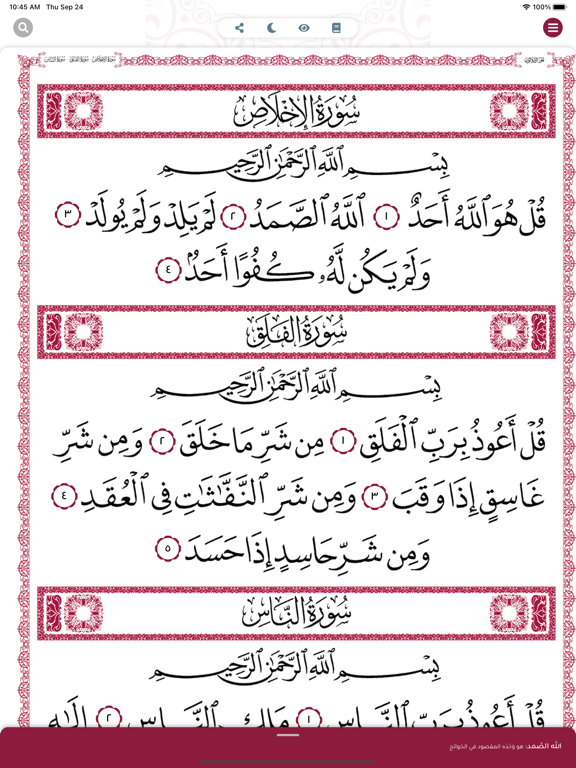 10:45 AM Thu Sep 24 100%
سُورَةُ الإِخْلَاصِ سُورَةُ الفَلَقِ سُورَةُ النَّاسِ
سُورَةُ الإِخْلَاصِ
بِسْمِ ٱللَّهِ ٱلرَّحْمَٰنِ ٱلرَّحِيمِ
قُلْ هُوَ ٱللَّهُ أَحَدٌ ١ ٱللَّهُ ٱلصَّمَدُ ٢ لَمْ يَلِدْ وَلَمْ يُولَدْ ٣
وَلَمْ يَكُن لَّهُۥ كُفُوًا أَحَدٌۢ ٤
سُورَةُ الفَلَقِ
بِسْمِ ٱللَّهِ ٱلرَّحْمَٰنِ ٱلرَّحِيمِ
قُلْ أَعُوذُ بِرَبِّ ٱلْفَلَقِ ١ مِن شَرِّ مَا خَلَقَ ٢ وَمِن شَرِّ
غَاسِقٍ إِذَا وَقَبَ ٣ وَمِن شَرِّ ٱلنَّفَّٰثَٰتِ فِى ٱلْعُقَدِ ٤
وَمِن شَرِّ حَاسِدٍ إِذَا حَسَدَ ٥
سُورَةُ النَّاسِ
بِسْمِ ٱللَّهِ ٱلرَّحْمَٰنِ ٱلرَّحِيمِ
قُلْ أَعُوذُ بِرَبِّ ٱلنَّاسِ ١ مَلِكِ ٱلنَّاسِ ٢ إِلَٰهِ
الله الصَّمد: هو وَحْدَه المقصود في الحَوائج